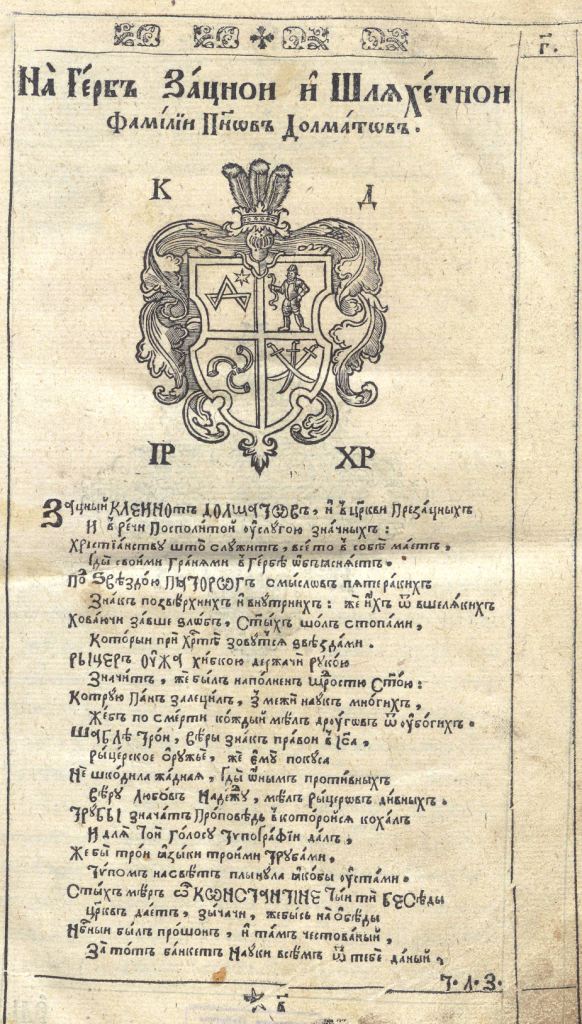 г҃.
На̀ Ге́рбъ За́цнои и҆ Шляхе́тнои
Фамі́лїи Пн҃ѡвъ Долма́тѡвъ.
К Д
ІР ХР
За́цный КЛЕИНОтъ ДОЛМАТѠВЪ, и҆ в̾ цр҃кви Преза́цныхъ
И в̾ ре́чи Посполи́той ѹ҆слу́гою зна́чныхъ:
Христїа́нству што̀ слу́житъ, все́ то в̾ собѣ̀ ма́етъ,
Гды̀ свои́ми Гра́нями в̾ Ге́рбѣ ѡ҆бъѧсня́етъ.
По ЗВѢЗДО́Ю ПѦТОРѠГЪ смы́слѡвъ пятера́кихъ
Зна́къ позве́рхнихъ и҆ вну́трнихъ: же и҆́хъ ѿ вшеля́кихъ
Хова́ючи за́вше ѕло́бъ, Ст҃ы́хъ шо́лъ стопа́ми,
Кото́рыи прѝ Хр҃тѣ̀ зову́тся ѕвѣзда́ми.
РЫЦЕРЪ ОУ҆́ЖА хи́бкою держачѝ руко́ю
Зна́читъ, же бы́лъ наполненъ мд҃ростю Ст҃о́ю:
Кото́рую Па́нъ залеци́лъ, з̾ межѝ нау́къ мно́гихъ,
Же́бъ по сме́рти ко́ждый мѣ́лъ дру́гѡвъ ѿ ѹ҆бо́гихъ.
ШАБЛѢ Тро́и, Вѣ́ры зна́къ пра́вои в̾ І҆с҃а,
Ры́церское Ѻ҆ру́жье, же є҆мꙋ̀ поку́са
Не шко́дила жа́дная, Гды̀ ѻ҆́нымъ проти́вныхъ
Вѣ́ру Любо́въ Наде́жу, мѣ́лъ Ры́церѡвъ ди́вныхъ.
ТРУ́БЫ зна́чатъ Про́повѣдь в̾ кото́ройся коха́лъ
И для̀ То́й го́лосу Тѷпогра́фїи да́лъ,
Же бы̀ тро́и ꙗ҆зы́ки трои́ми Тру́бами,
Тѷпомъ на свѣ́тъ плыну́ла ꙗ҆́кобы ѹ҆ста́ми.
Ст҃ы́хъ ме́ръ ѿ КѠНСТАНТИНЕ Ты́и тѝ БЕСѢ́ды
Цр҃ковъ дае́тъ, зы́чачи, же́бысь на̀ ѡ҆бѣ́ды
Нб҃сныи бы́лъ про́шонъ, и҆ та́мъ често́ваный,
За то́тъ ба́нкетъ Нау́ки всѣ́мъ ѿ тебѐ да́ный,
Т. Л. З.
в҃